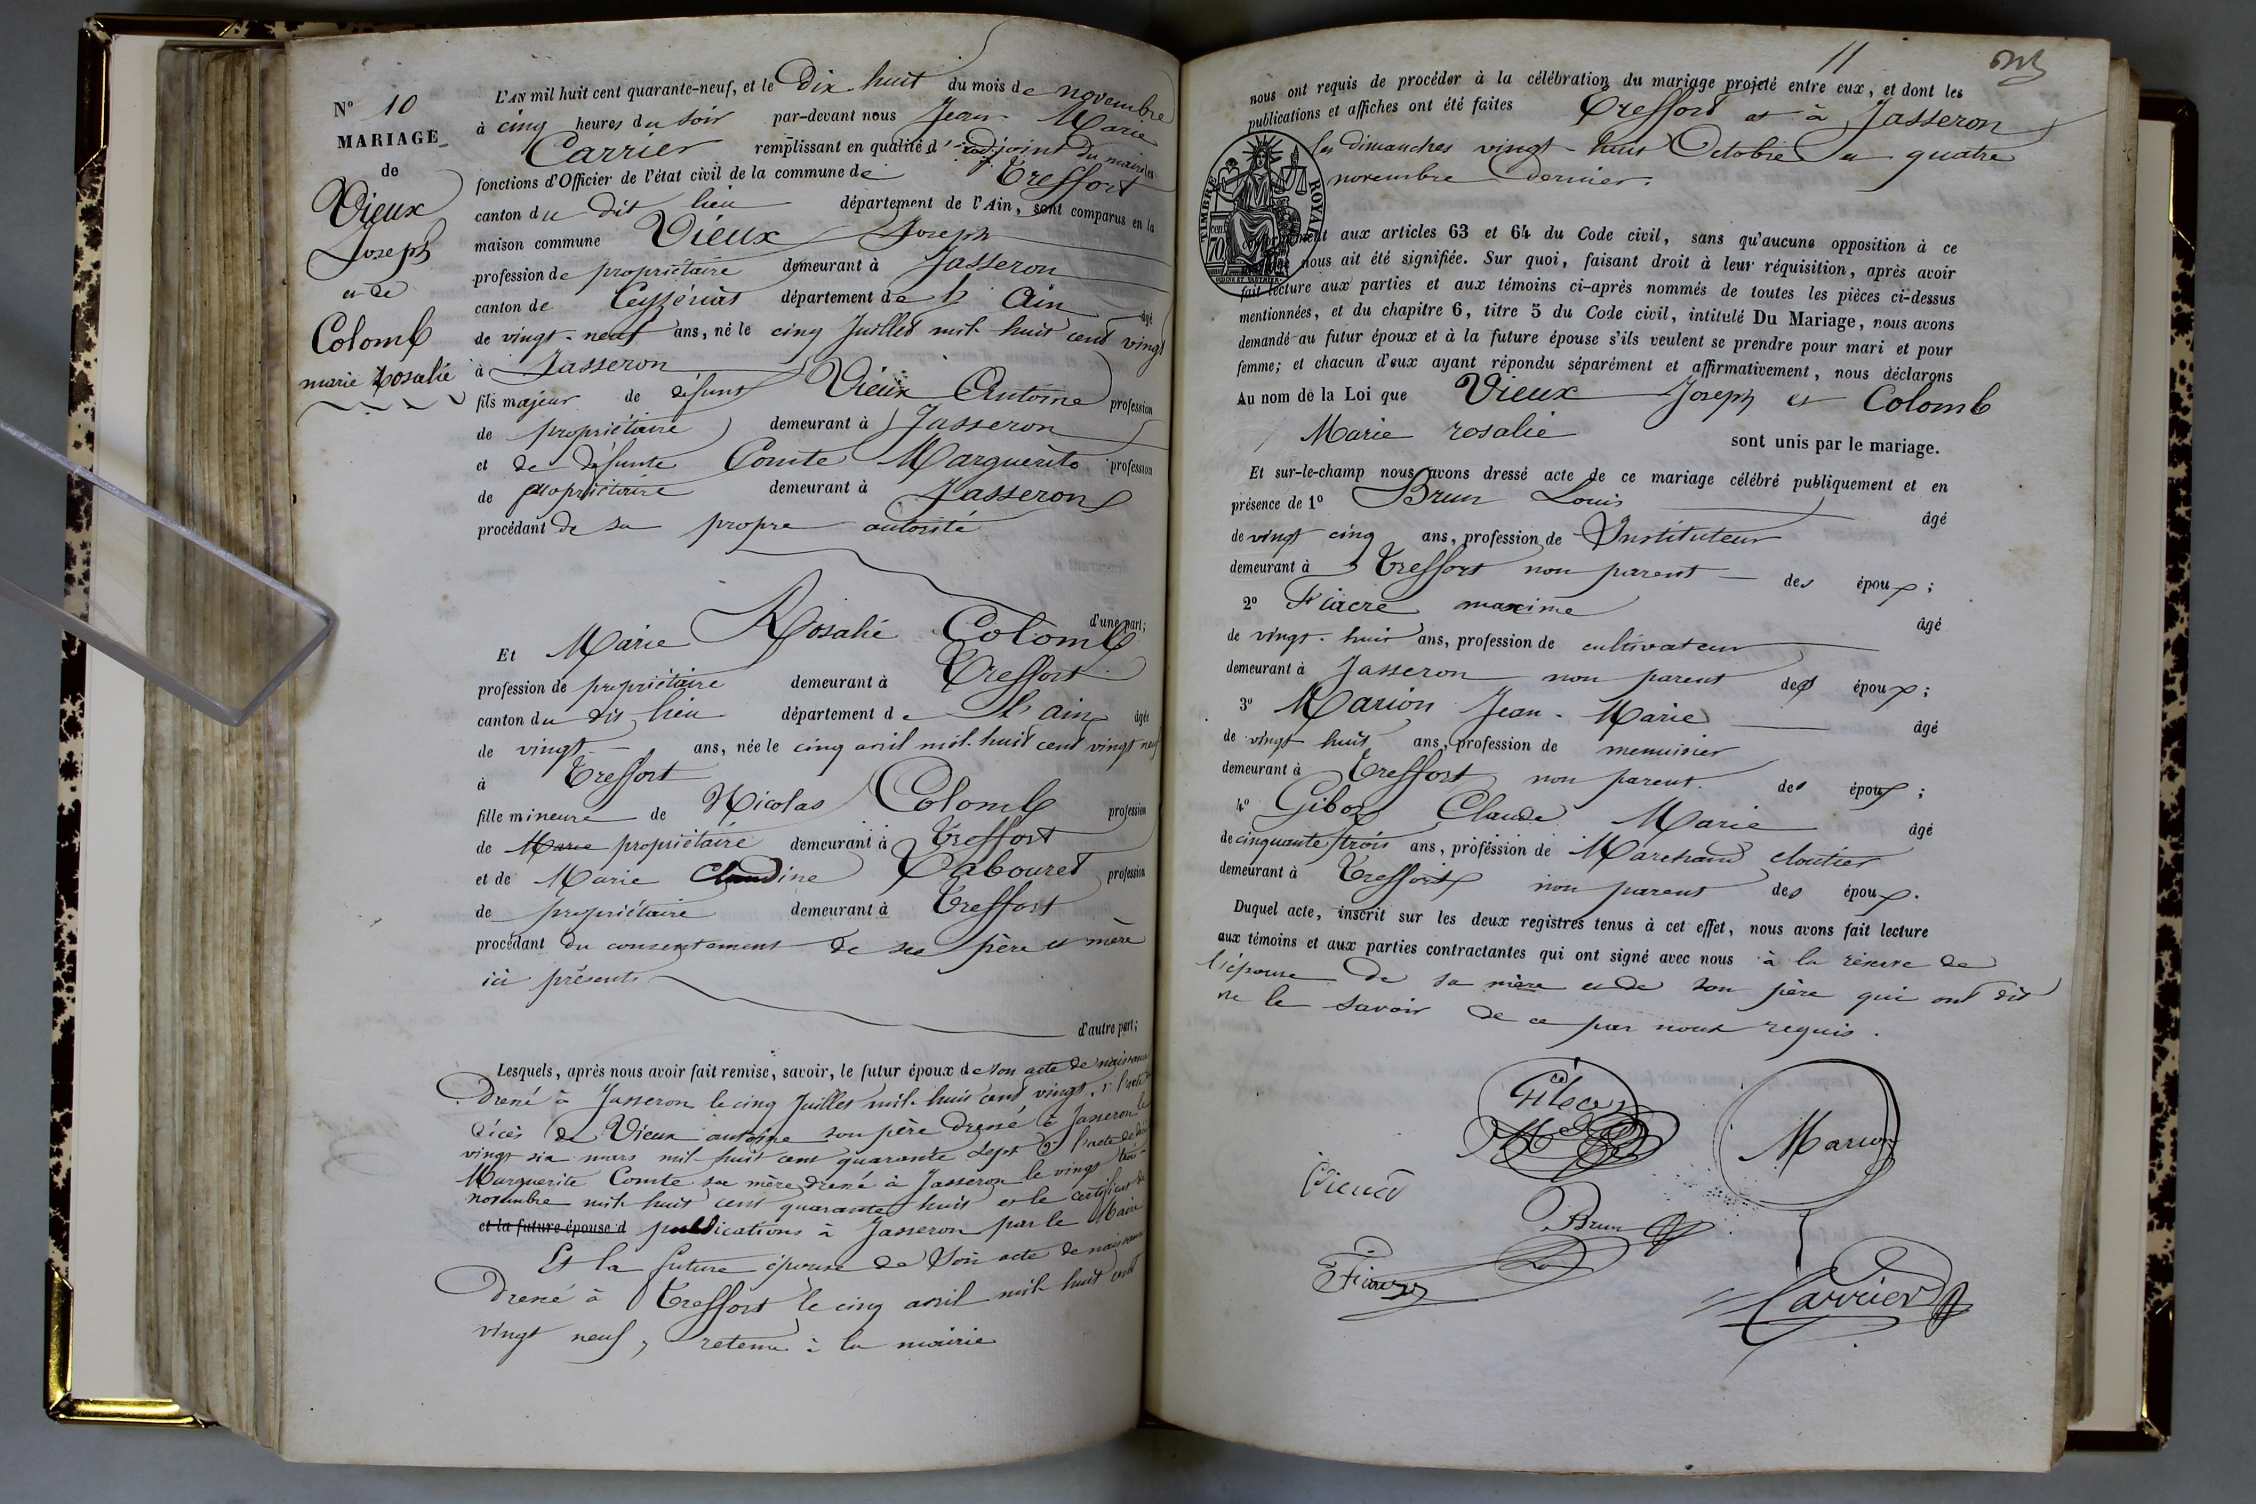 N° 10
MARIAGE
de
Vieux
Joseph
et de
Colomb
marie Rosalie
L'AN mil huit cent quarante-neuf, et le Dix huit du mois de novembre
à cinq heures du soir par-devant nous Jean Marie
Carrier remplissant en qualité d'adjoint du maire les
fonctions d'Officier de l'état civil de la commune de Treffort
canton du dit lieu département de l'Ain, sont comparus en la
maison commune Vieux Joseph
profession de propriétaire demeurant à Jasseron
canton de Ceyzériat département de l'Ain âgé
de vingt-neuf ans, né le cinq Juillet mil huit cent vingt
à Jasseron
fils majeur de défunt Vieux Antoine profession
de propriétaire demeurant à Jasseron
et de défunte Comte Marguerite profession
de propriétaire demeurant à Jasseron
procédant de sa propre autorité
d'une part;
Et Marie Rosalie Colomb
profession de propriétaire demeurant à Treffort
canton du dit lieu département de L'ain âgée
de vingt ans, née le cinq avril mil huit cent vingt neuf
à Treffort
fille mineure de Nicolas Colomb profession
de Marie propriétaire demeurant à Treffort
et de Marie Claudine Cabouret profession
de propriétaire demeurant à Treffort
procédant du consentement de ses père et mère
ici présents
d'autre part;
Lesquels, après nous avoir fait remise, savoir, le futur époux de son acte de naissance
Dressé à Jasseron le cinq Juillet mil huit cent vingt, 1° l'acte de
décès de Vieux antoine son père dressé à Jasseron le
vingt six mars mil huit cent quarante sept 2° l'acte de décès
Marguerite Comte sa mère dressé à Jasseron le vingt trois
novembre mil huit cent quarante huit et le certificat de
et la future épouse d publications à Jasseron par le Maire
Et la future épouse de Son acte de naissance
Dressé à Treffort le cinq avril mil huit cent
vingt neuf, retenu à la mairie
11
nous ont requis de procéder à la célébration du mariage projeté entre eux, et dont les
publications et affiches ont été faites Treffort et à Jasseron
les dimanches vingt-huit Octobre et quatre
novembre dernier.
TIMBRE ROYAL
70 cent
conformément aux articles 63 et 64 du Code civil, sans qu'aucune opposition à ce
mariage nous ait été signifiée. Sur quoi, faisant droit à leur réquisition, après avoir
fait lecture aux parties et aux témoins ci-après nommés de toutes les pièces ci-dessus
mentionnées, et du chapitre 6, titre 5 du Code civil, intitulé Du Mariage, nous avons
demandé au futur époux et à la future épouse s'ils veulent se prendre pour mari et pour
femme; et chacun d'eux ayant répondu séparément et affirmativement, nous déclarons
Au nom de la Loi que Vieux Joseph et Colomb
Marie rosalie sont unis par le mariage.
Et sur-le-champ nous avons dressé acte de ce mariage célébré publiquement et en
présence de 1° Brun Louis âgé
de vingt cinq ans, profession de Instituteur
demeurant à Treffort non parent des époux;
2° Fiacre maxime âgé
de vingt-huit ans, profession de cultivateur
demeurant à Jasseron non parent des époux;
3° Marion Jean-Marie âgé
de vingt huit ans, profession de menuisier
demeurant à Treffort non parent des époux;
4° Giboz Claude Marie âgé
de cinquante trois ans, profession de Marchand cloutier
demeurant à Treffort non parent des époux.
Duquel acte, inscrit sur les deux registres tenus à cet effet, nous avons fait lecture
aux témoins et aux parties contractantes qui ont signé avec nous à la réserve de
l'épouse de sa mère et de son père qui ont dit
ne le savoir de ce par nous requis.
Marion
Vieux
Brun
Fiacre
Carrier